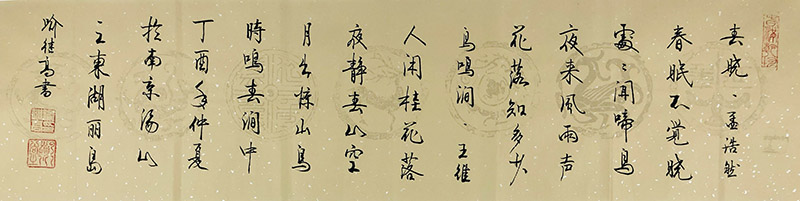 春晓、孟浩然
春眠不覺晓
處〻闻啼鸟
夜来風雨声
花落知多少
鸟鳴涧、王维
人闲桂花落
夜静春山空
月出惊山鸟
時鳴春涧中
丁酉年仲夏
於南京湯山
之東湖丽岛
高書